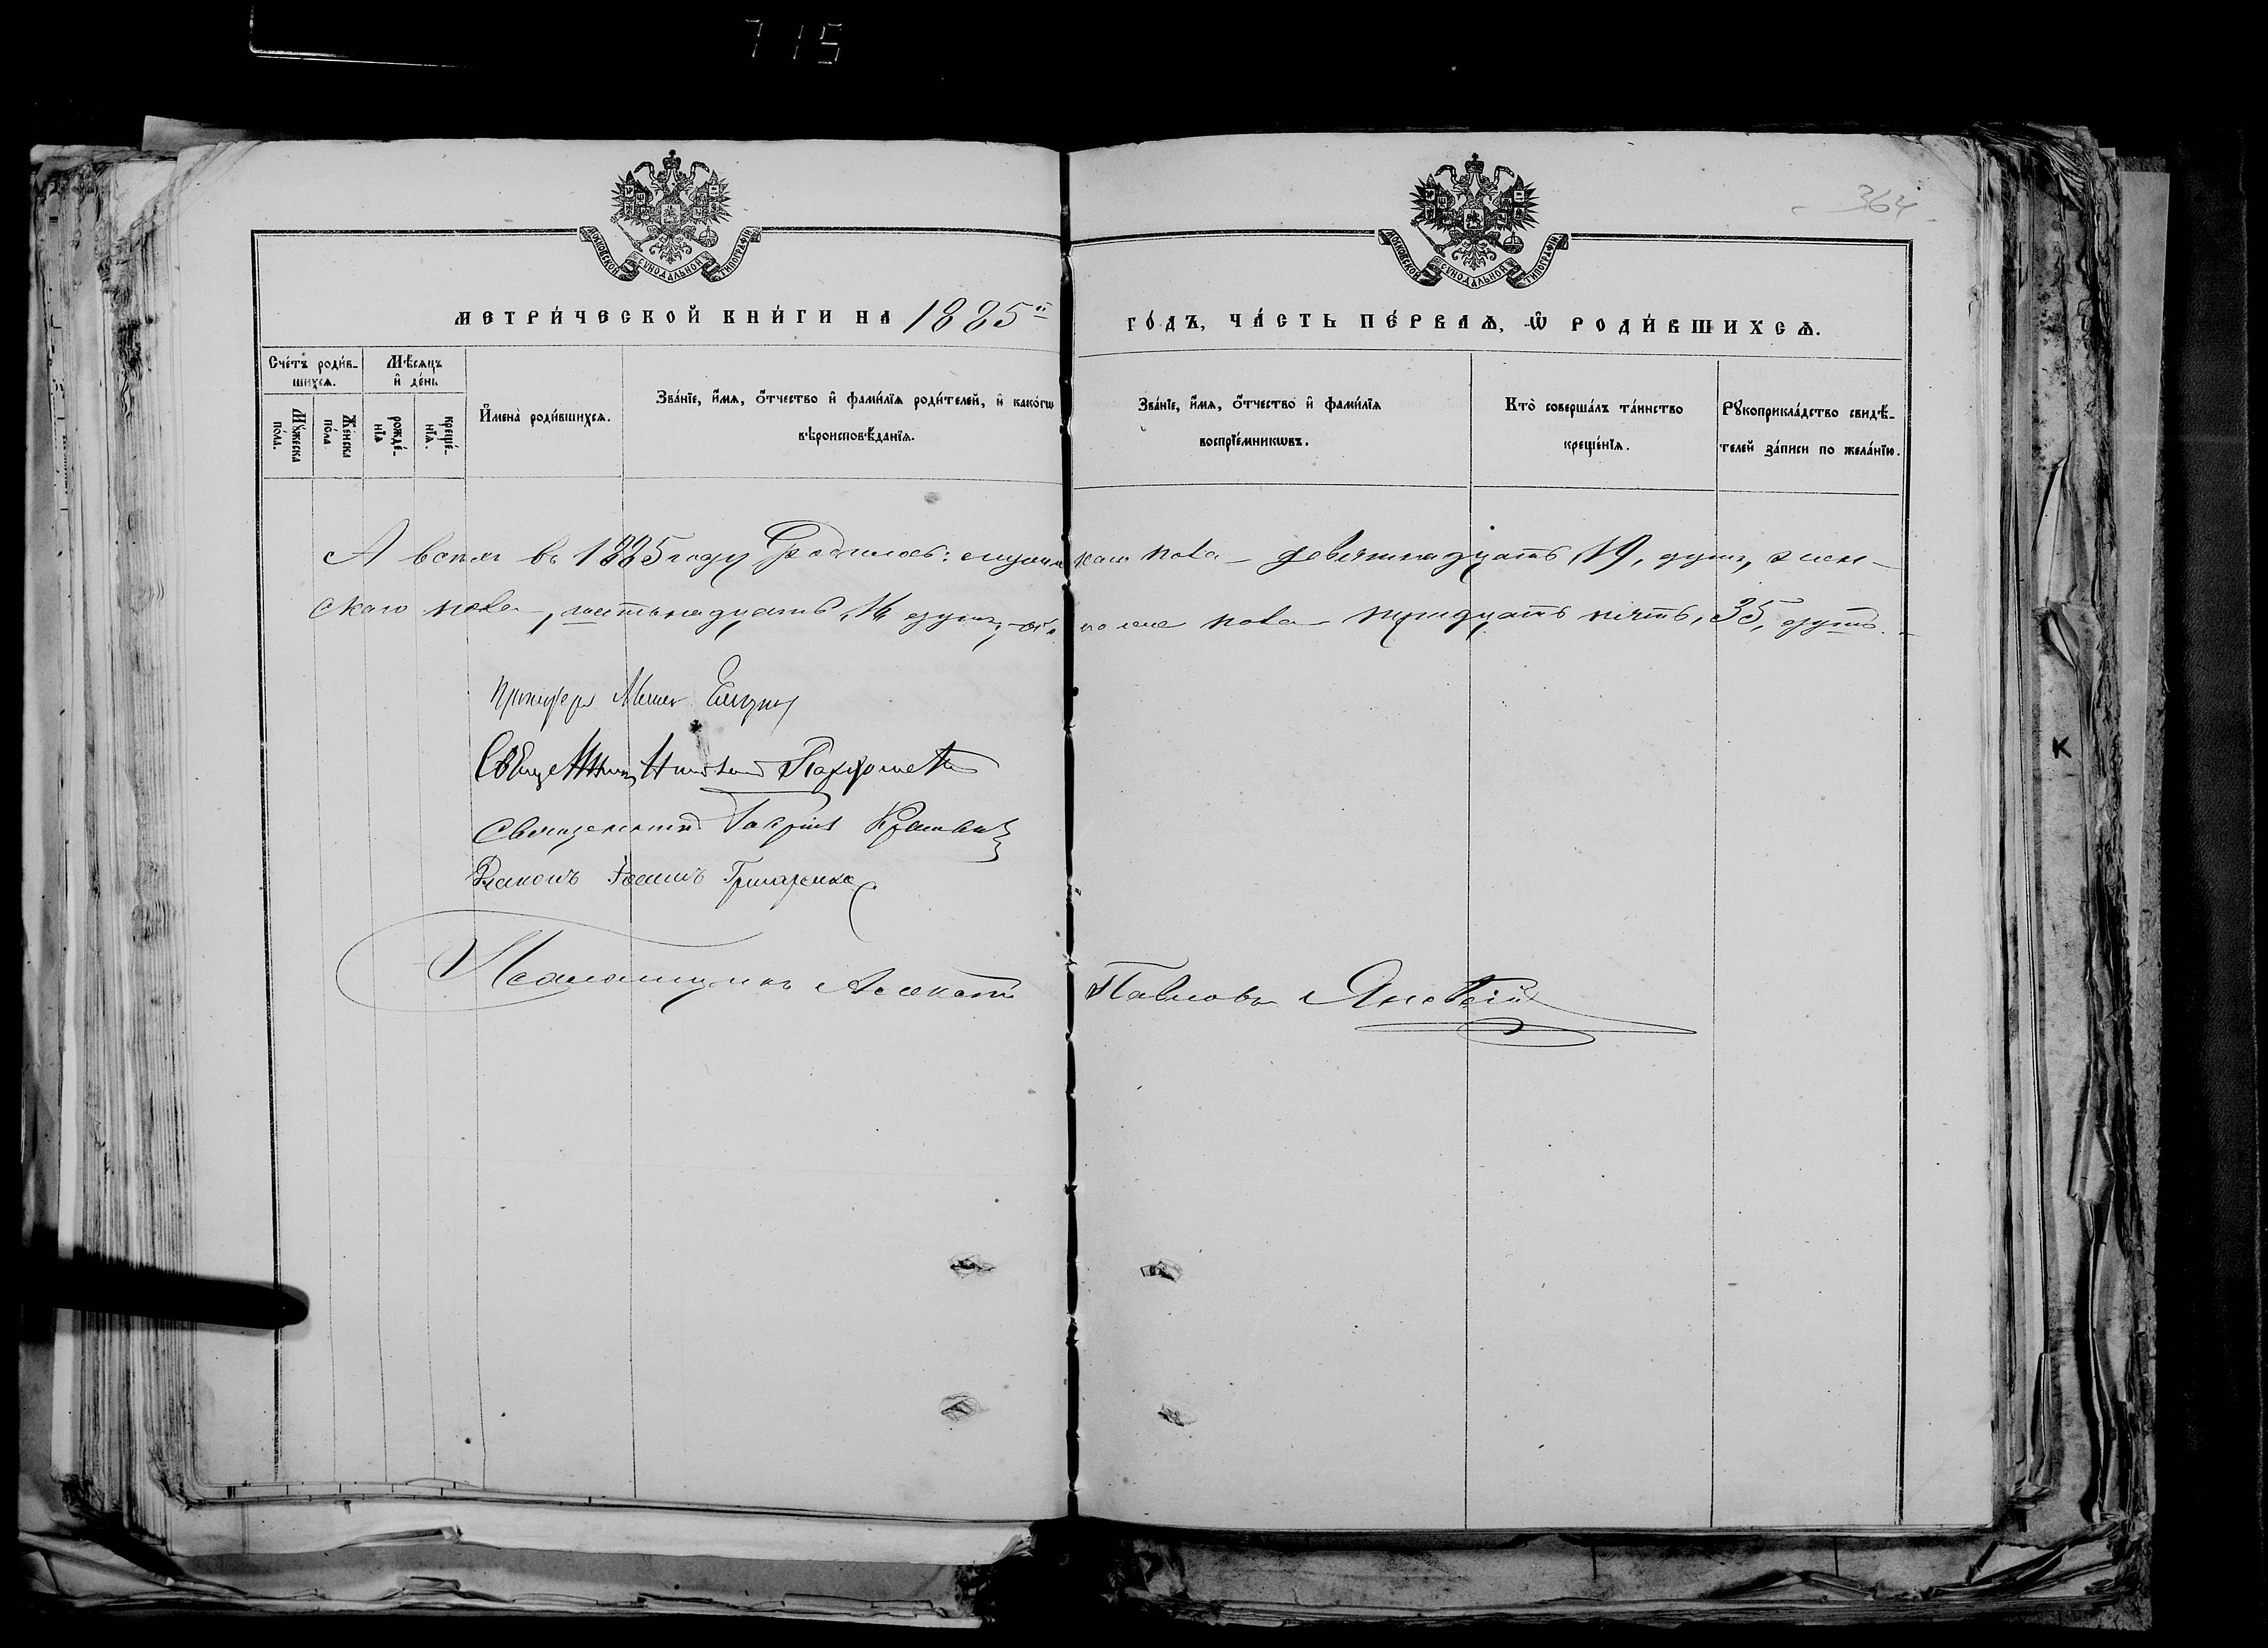 715
364
МОСКОВСКОЙ СѴНОДАЛЬНОЙ ТИПОГРАФІИ
МОСКОВСКОЙ СѴНОДАЛЬНОЙ ТИПОГРАФІИ
МЕТРИ́ЧЕСКОЙ КНИ́ГИ НА 1885й ГО́ДЪ, ЧА́СТЬ ПЕ́РВАѦ, Ѿ РОДИ́ВШИХСѦ.
Сче́тъ роди́в-
шихсѧ.
Мꙋ́жеска
по́ла.
Же́нска
по́ла
Мѣ́сѧцъ
и҆ де́нь
рожде́-
нїѧ
креще́-
нїѧ.
И҆мена̀ роди́вшихсѧ.
Зва́нїе, и҆́мѧ, ѻ҆́тчество и҆ фами́лїѧ роди́телей, и҆ како́гѡ
вѣроисповѣ́данїѧ.
Зва́нїе, и҆́мѧ, ѻ҆́тчество и҆ фами́лїѧ
воспрїе́мникѡвъ.
Кто̀ соверша́лъ та́инство
креще́нїѧ.
Рꙋкоприкла́дство свидѣ́-
телей за́писи по жела́нїю.
А всего въ 1885 году родилось: мужескаго пола – девятнадцать, 19, душъ, жен-
скаго пола –, шестьнадцать, 16 душъ, – обоего пола – тридцать пять, 35, душъ. –
Священникъ Николай
Священникъ Гавріилъ
Діаконъ Іоаннъ
Псаломщикъ Павловъ Яновскій
К